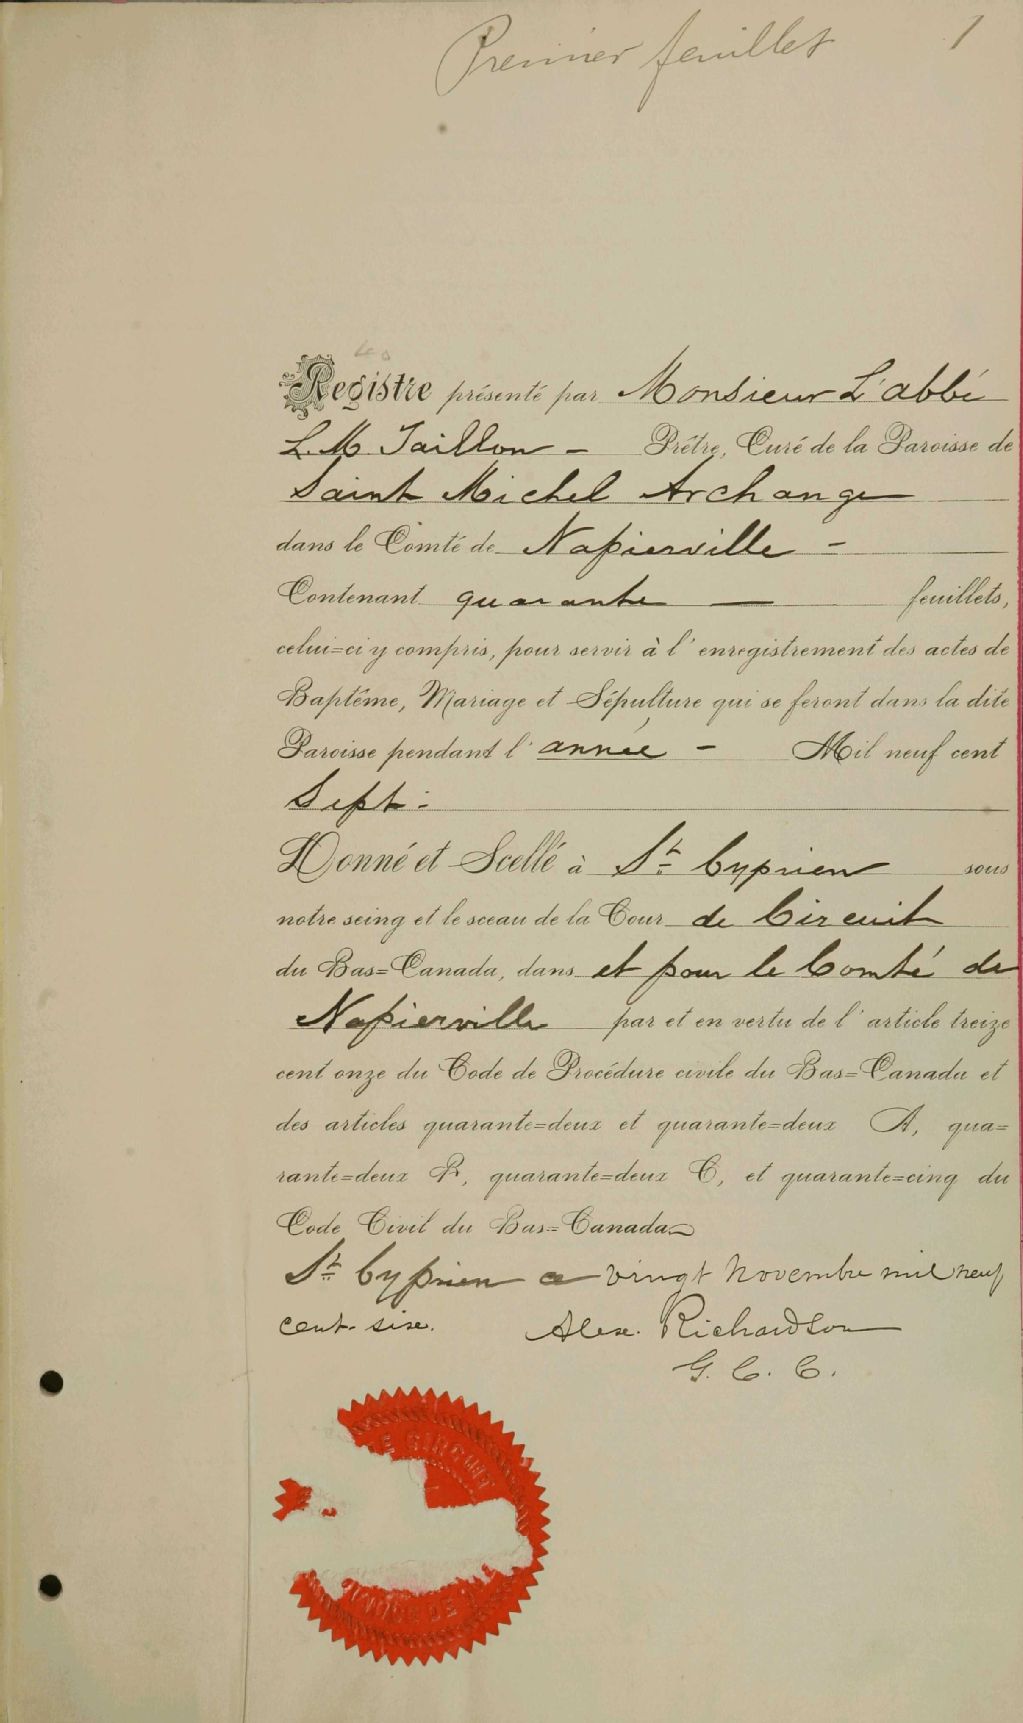 Premier feuillet 1
40
Registre présenté par Monsieur L'abbé
L. M. Taillon - Prêtre, Curé de la Paroisse de
Saint Michel Archange
dans le Comté de Napierville -
Contenant quarante - feuillets,
celui=ci y compris, pour servir à l'enregistrement des actes de
Baptême, Mariage et Sépulture qui se feront dans la dite
Paroisse pendant l'année - Mil neuf cent
Sept.
Donné et Scellé à St Cyprien sous
notre seing et le sceau de la Cour de Circuit
du Bas=Canada, dans et pour le Comté de
Napierville par et en vertu de l'article treize
cent onze du Code de Procédure civile du Bas=Canada et
des articles quarante=deux et quarante=deux A, qua=
rante=deux B, quarante=deux C, et quarante=cinq du
Code Civil du Bas=Canada
St Cyprien ce vingt Novembre mil neuf
cent six. Alex. Richardson
G. C. C.
E CIRCUIT